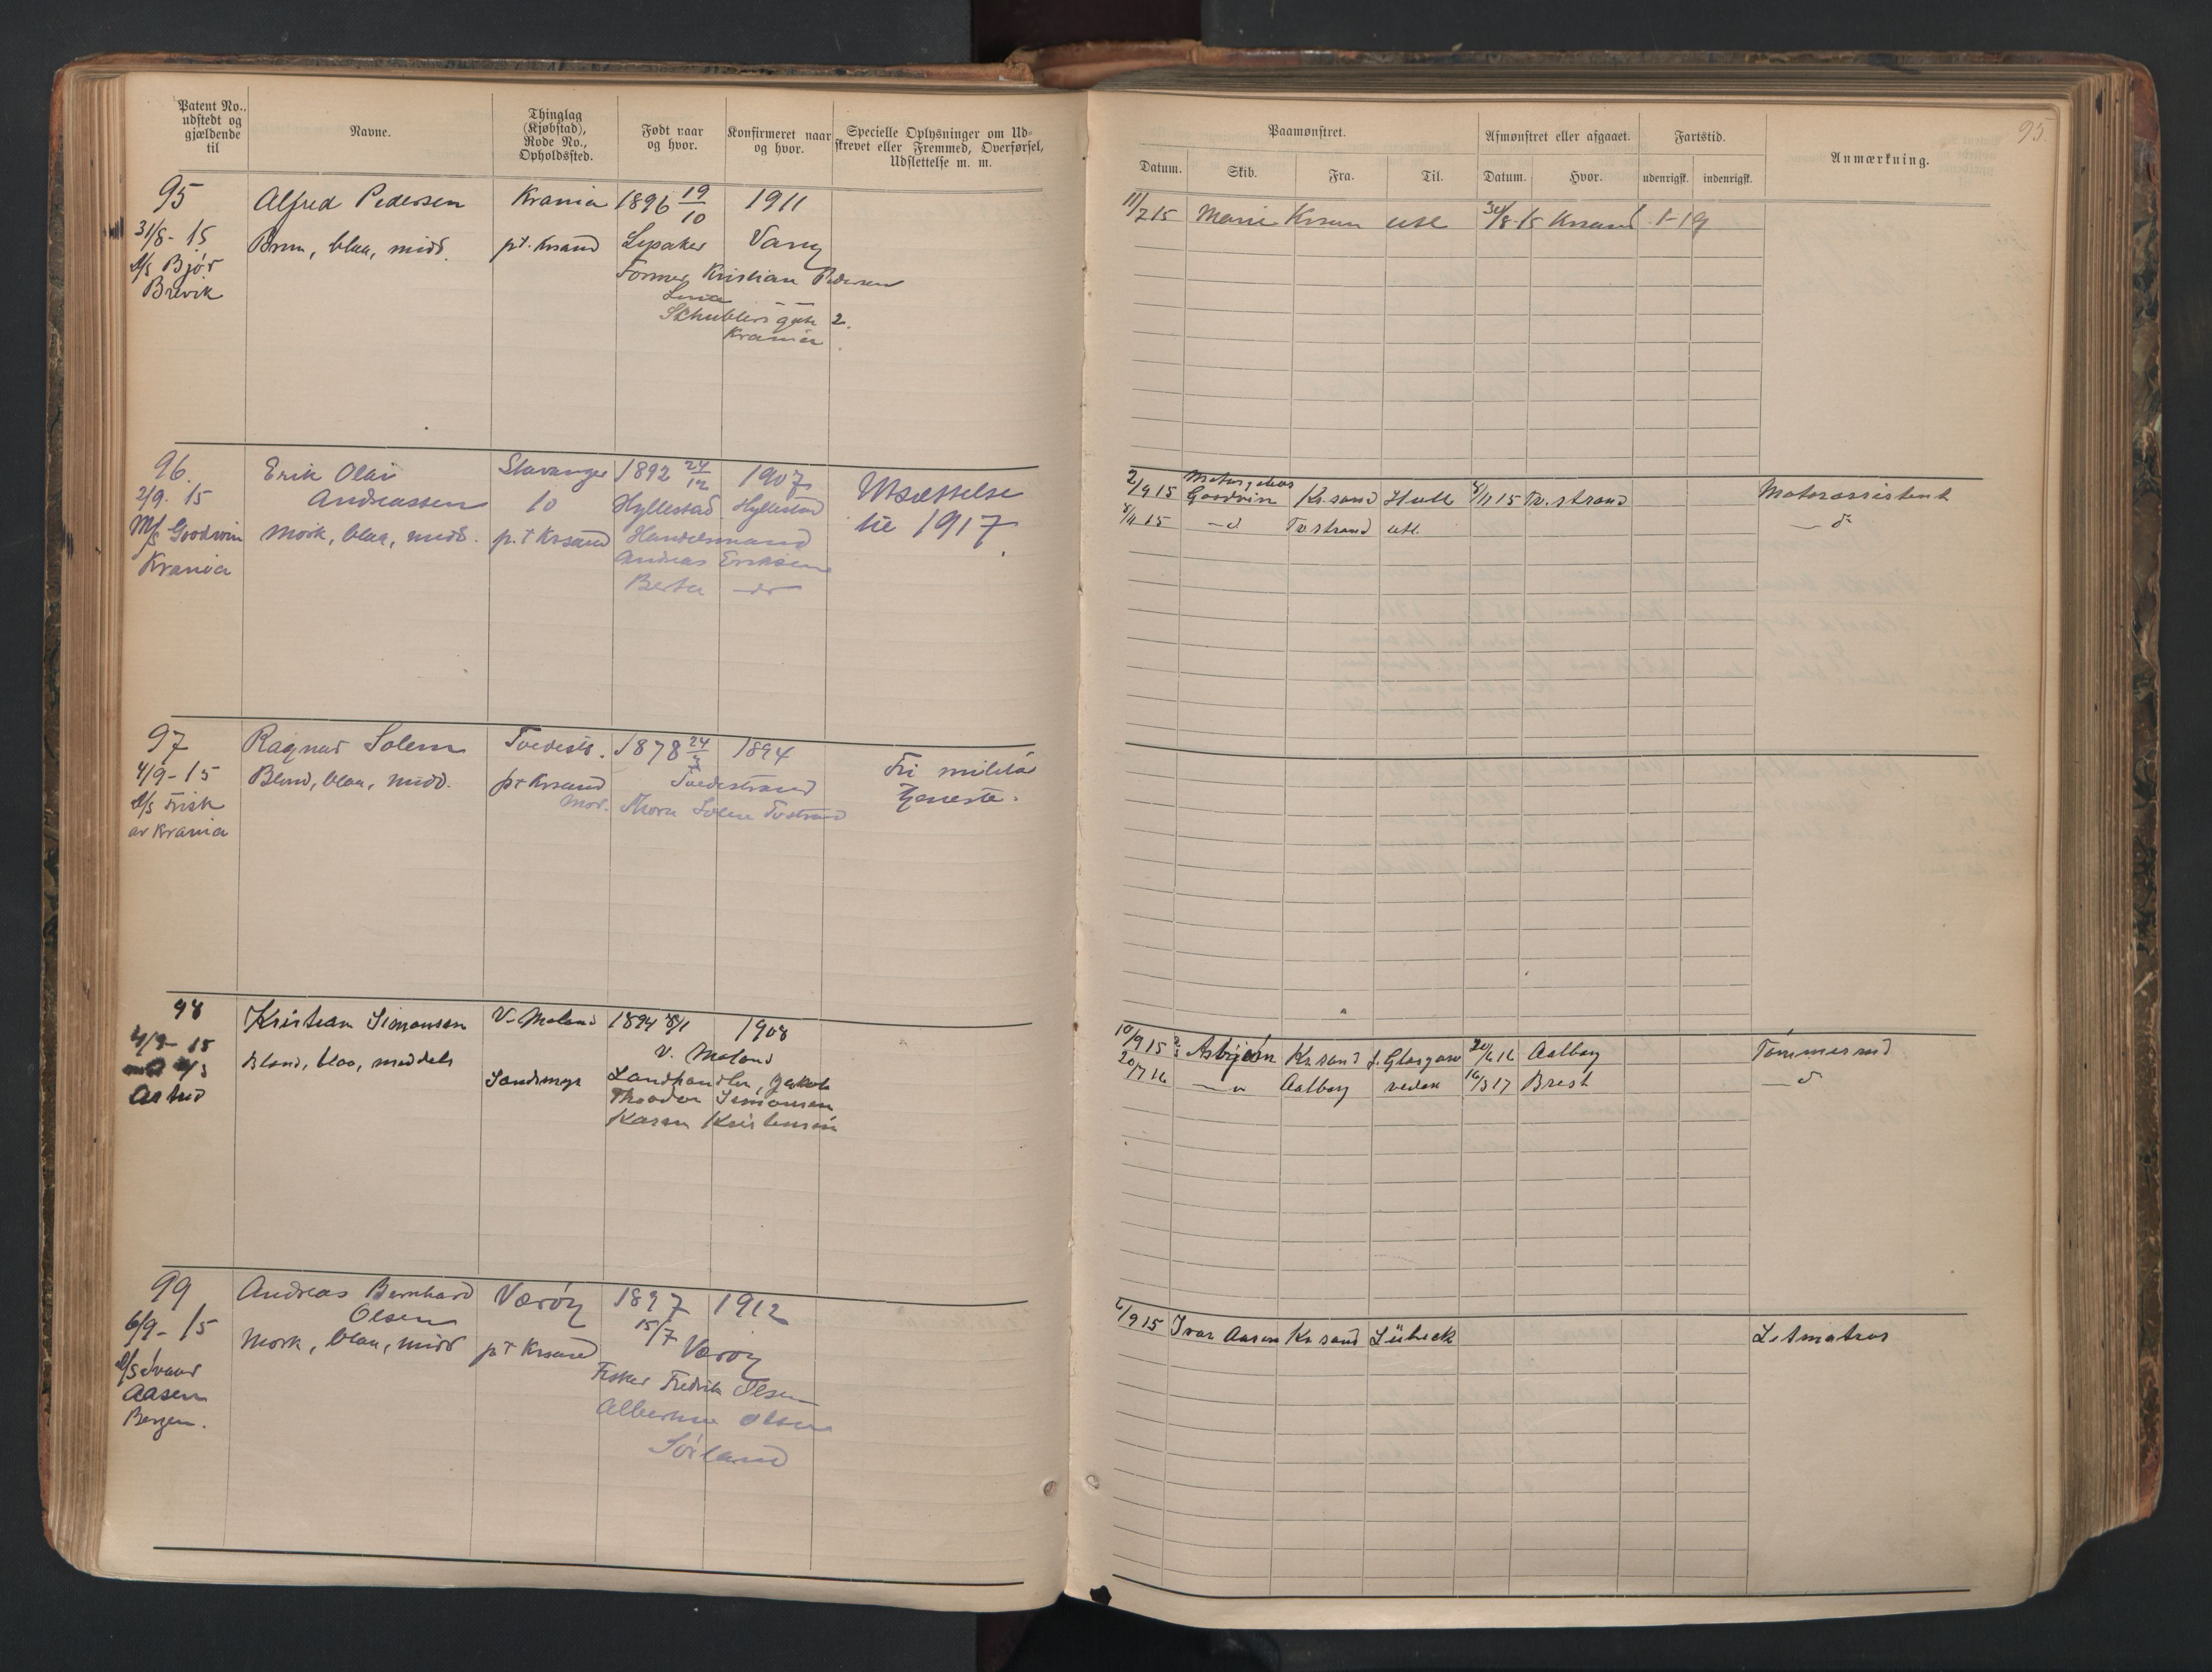 Patent No.,
udstedt og
gjældende
til
Navne.
Thinglag
(Kjøbstad),
Rode No.,
Opholdssted.
Født naar
og hvor.
Konfirmeret naar
og hvor.
Specielle Oplysninger om Ud-
skrevet eller Fremmed, Overførsel,
Udslettelse m. m.
95
31/8- 15
D/s Bjør
Brevik
Alfred Pedersen
Brun, blaa, midd.
Krania
pt. Krsand
1896 19/10
1911
Lysaker Vang
Former Kristian Pedersen
Lina — —
Schüblers gate 2.
Krania
96.
2/9. 15
M/s Goodwin
Krania
Erik Olai
Andreassen
Mørk, blaa, midd.
Stavanger
10
p.t Krsand
1892 24/12
1907
Hyllestad Hyllestad
Handelsmand
Andreas Eriksen
Berta —d—
Utsættelse
til 1917.
97
4/9-15
D/s Frisk
av Krania
Ragnar Solem
Blond, blaa, midd.
Tvedestr.
pt Krsand
1878 24/
1894
Tvedestrand
Mor. Thora Solem Tvstrand
Fri militær
tjeneste.
98
4/9- 15
Astrid
Kristian Simonsen
Blond, blaa, middels
V. Moland
Sandsmyr
1894 8/1
1908
V. Moland
Landhandler, Jakob
Theodor Simonsen
Karen Kristensen
99
6/9- 15
D/s Ivar
Aasen
Bergen.
Andreas Bernhard
Olsen
Mørk, blaa, midd
Værøy
pt Krsand
1897
15/7
1912
Værøy
Fisker Fredrik Olsen
Albertine Olsen
Sørland
95.
Paamønstret.
Afmønstret eller afgaaet.
Fartstid.
Anmærkning.
Datum.
Skib.
Fra.
Til.
Datum.
Hvor.
udenrigsk.
indenrigsk.
11/7 15 Marie Krsan utl 30/8-15 Krsand 1-19
2/9 15 Goodwin Kr.sand Hull 8/11 15 Tv.strand Motorassistent
8/11 15 —d Tv.strand utl. —d—
10/9 15 Asbjørn Kr.sand f. Glasgow 20/6 16 Aalborg Tømmermd
20/7 16 —"— Aalborg vedex 16/3 17 Brest —d
6/9 15 Ivar Aasen Kr.sand Lübeck Letmatros